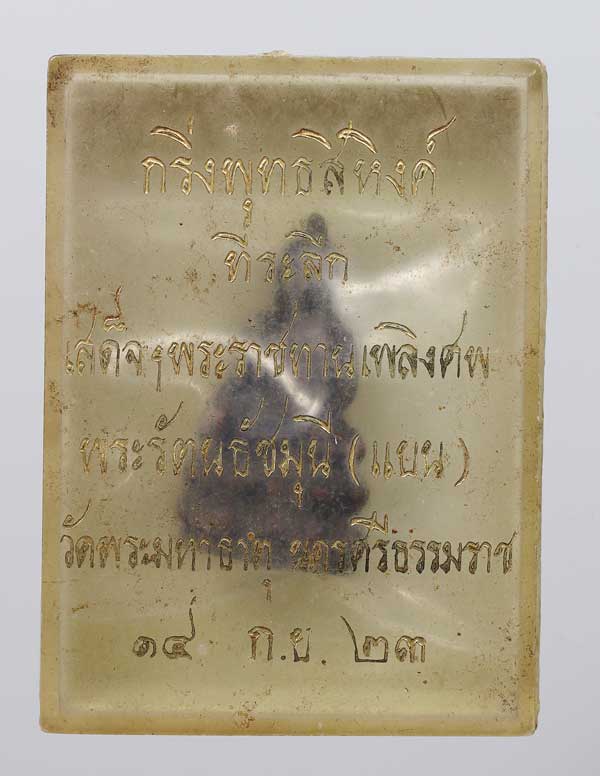 กริ่งพุทธสิหิงค์
ที่ระลึก
เสด็จฯพระราชทานเพลิงศพ
พระรัตนธัชมุนี (แบน)
วัดพระมหาธาตุ นครศรีธรรมราช
๑๔ ก.ย. ๒๓